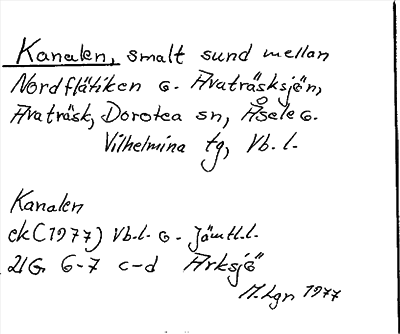 Kanalen, smalt sund mellan
Nordflätiken o. Avaträsksjön,
Avaträsk, Dorotea sn, Åsele o.
Vilhelmina tg, Vb. l.
Kanalen
ek (1977) Vb.l. o. Jämtl.l.
21G 6-7 c-d Arksjö
M. Lgr 1977